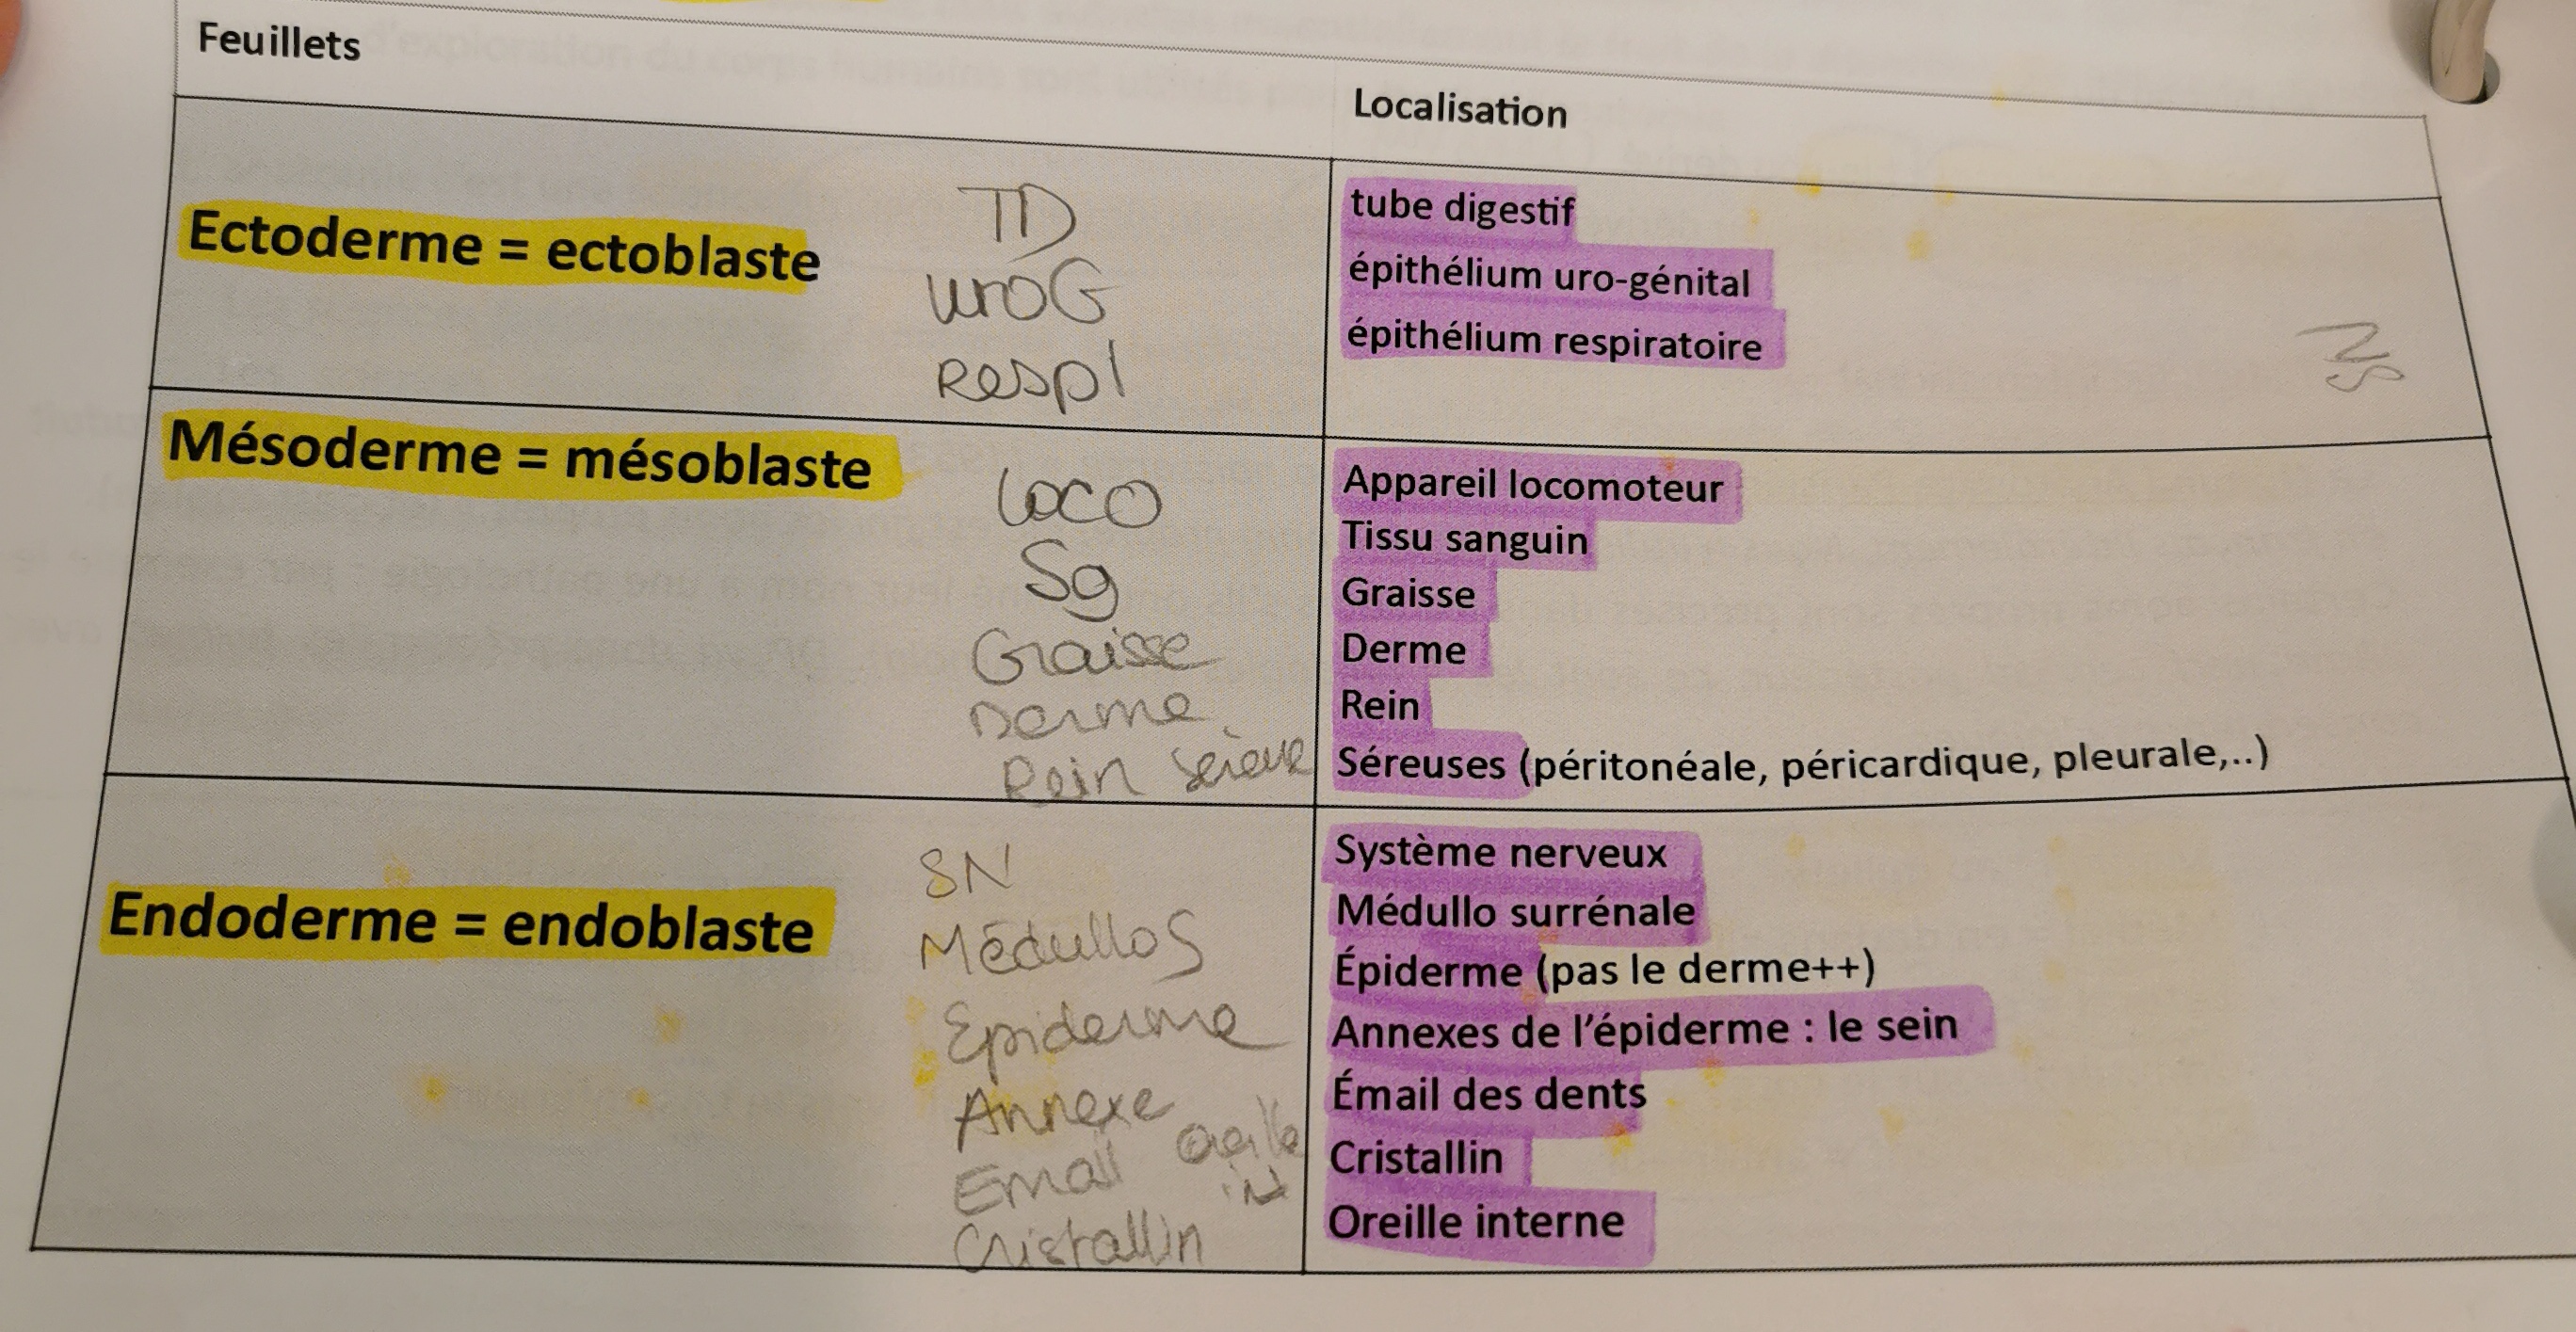 Feuillets
Localisation
Ectoderme = ectoblaste
TD
uroG
Respi
tube digestif
épithélium uro-génital
épithélium respiratoire
Mésoderme = mésoblaste
Loco
Sg
Graisse
Derme
Rein
Appareil locomoteur
Tissu sanguin
Graisse
Derme
Rein
Séreuses (péritonéale, péricardique, pleurale,..)
Endoderme = endoblaste
SN
Médullo S
Epiderme
Annexe
Email
Cristallin
Système nerveux
Médullo surrénale
Épiderme (pas le derme++)
Annexes de l'épiderme : le sein
Émail des dents
Cristallin
Oreille interne